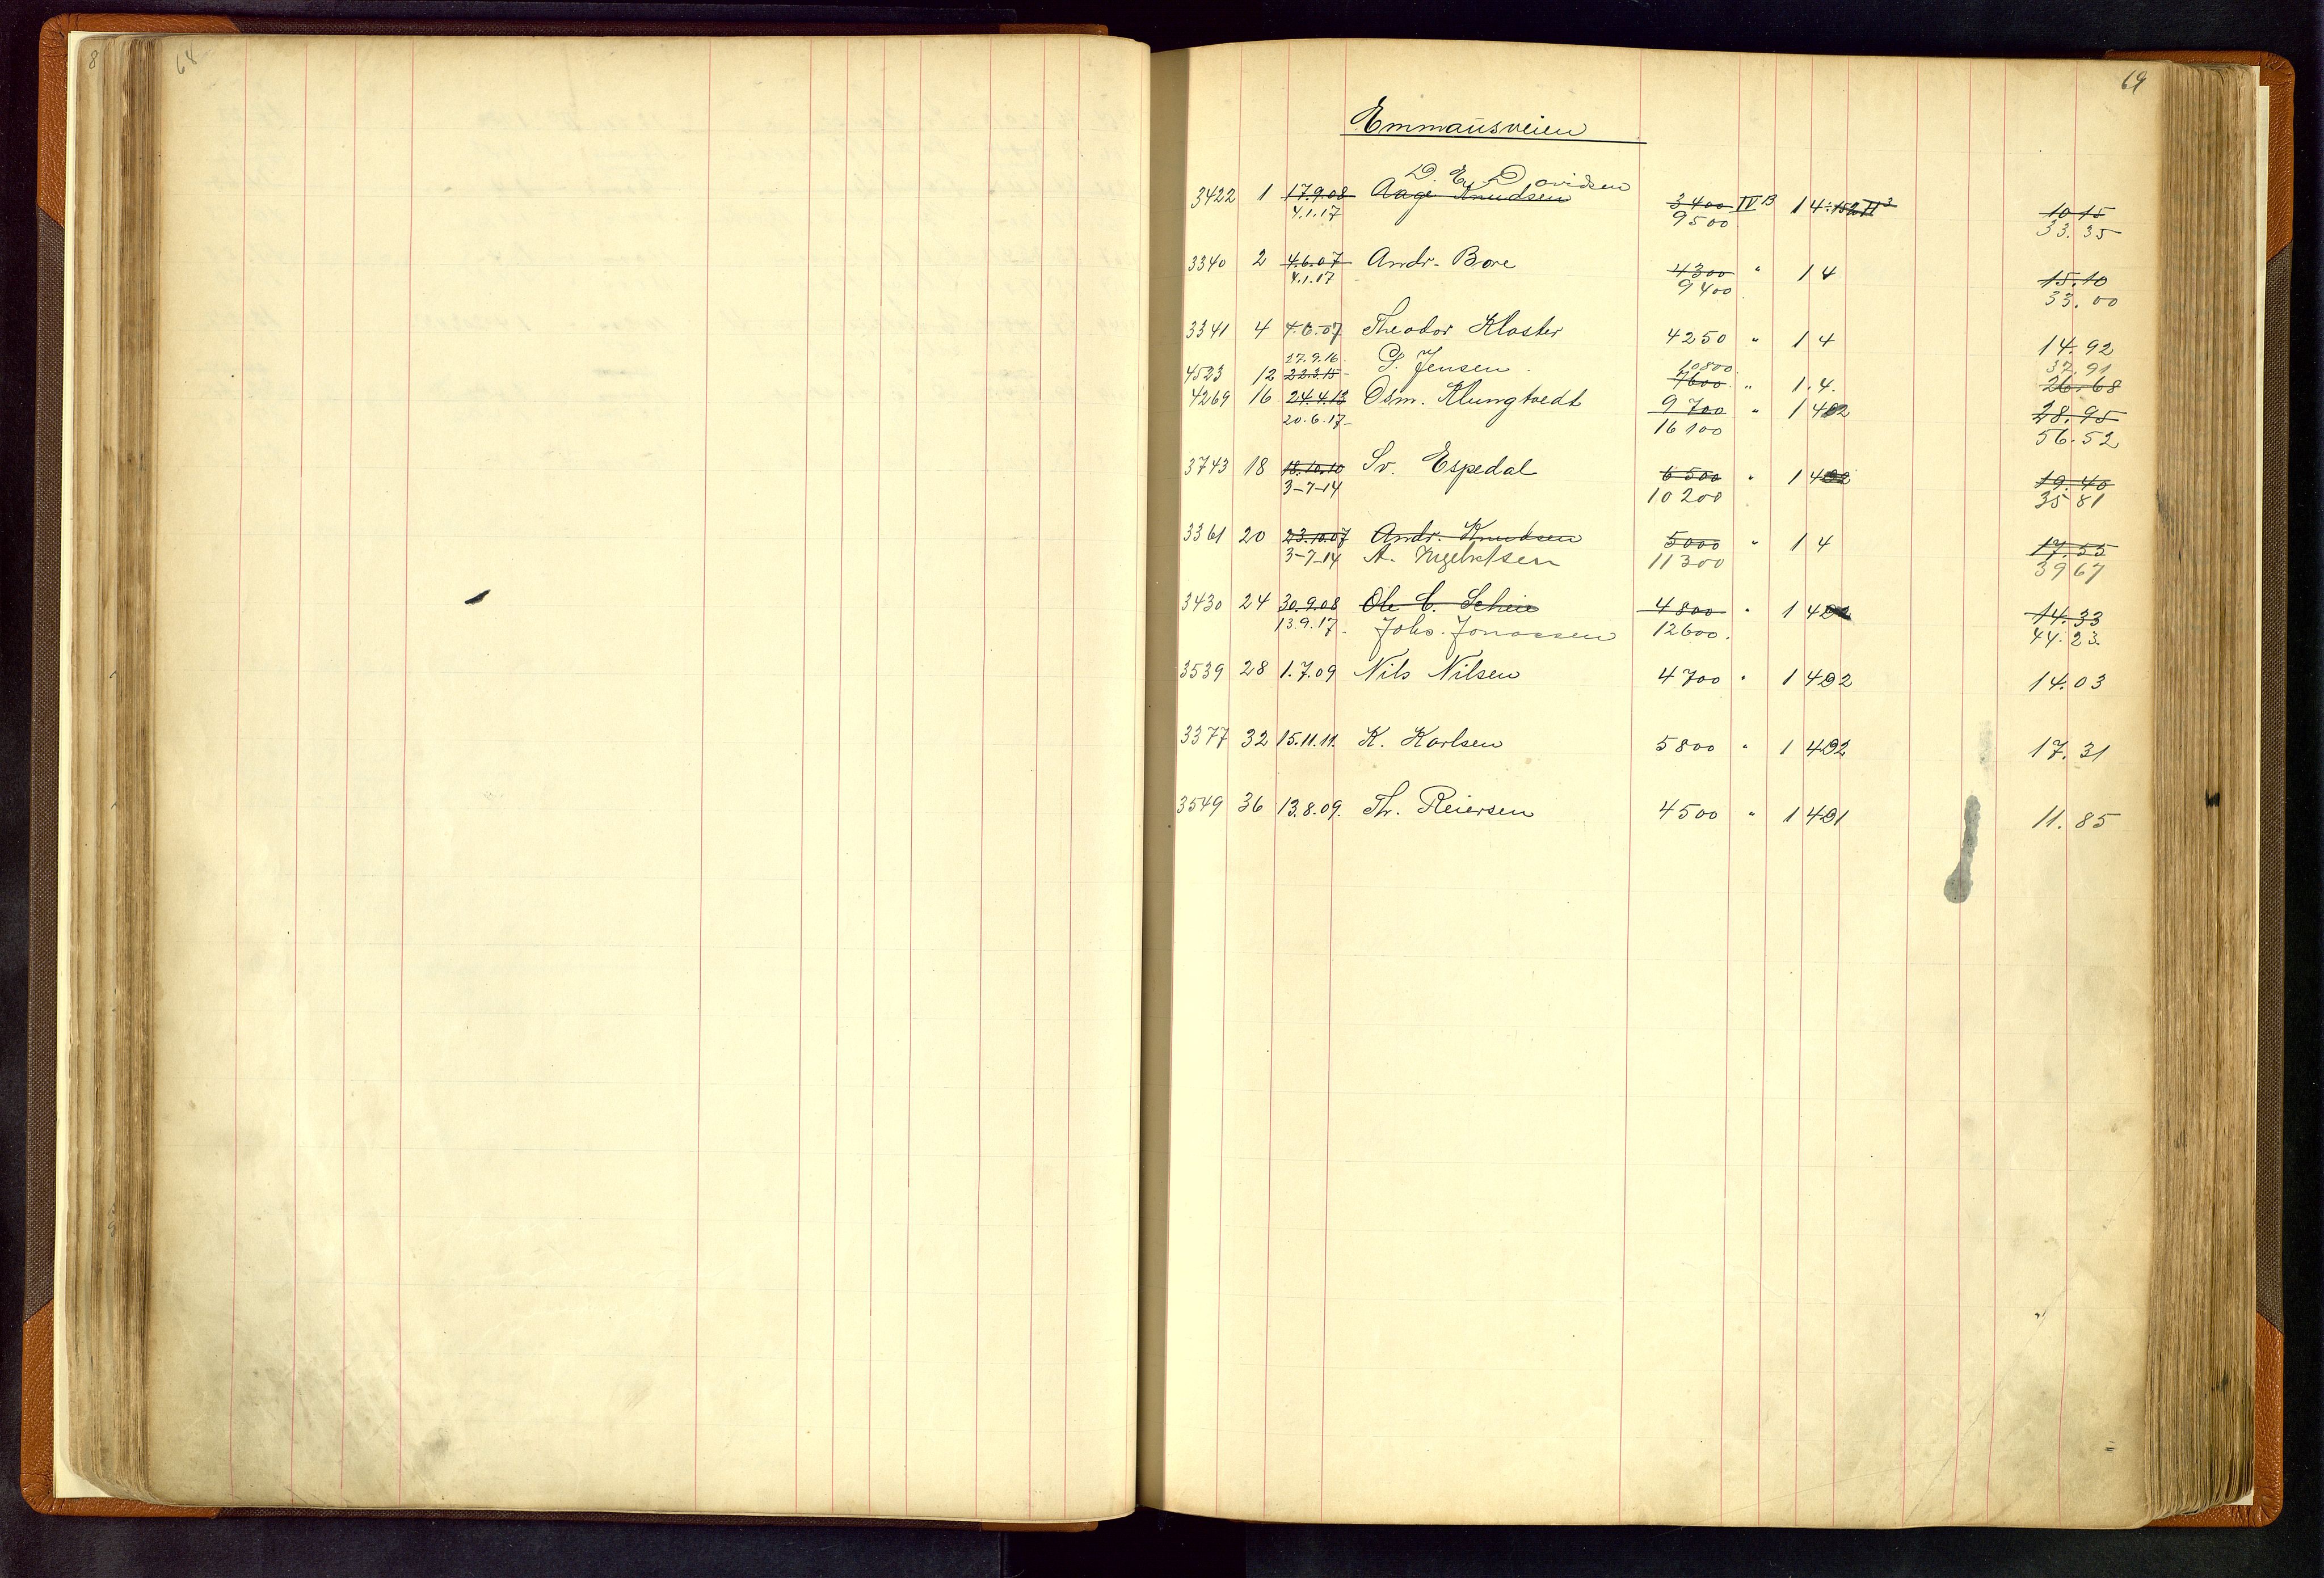 8
68
69
Emmausveien
D. E. Davidsen
3422 1 17.9.08 Aage Knudsen 3400 IV B 1 4 152 II 2 10 15
4.1.17 9500 33.35
3340 2 4.6.07 Andr. Bore 4300 " 1 4 15.10
4.1.17 9400 33.00
3341 4 4.6.07 Theodor Kloster 4250 " 1 4 14.92
27.9.16. P. Jensen. 10800 37.91
4523 12 22.3.15 7600 " 1.4. 26.68
4269 16 24.4.13 Osm. Klungtvedt 9700 " 1 4 2 28.95
20.6.17 16100 56.52
3743 18 18.10.10 Sv. Espedal 6500 " 1 4 2 19.40
3-7-14 10200 35 81
3361 20 23.10.07 Andr. Knudsen 5000 " 1 4 17.55
3-7-14 A. Ingebretsen 11300 39 67
3430 24 30.9.08 Ole C. Scheie 4800 " 1 4 14.33
13.9.17. Johs. Jonassen 12600. 44.23
3539 28 1.7.09 Nils Nilsen 4700 " 1 4 02 14.03
3377 32 15.11.11. K. Karlsen 5800 " 1 4 02 17.31
3549 36 13.8.09. Th. Reiersen 4500 " 1 4 01 11.85